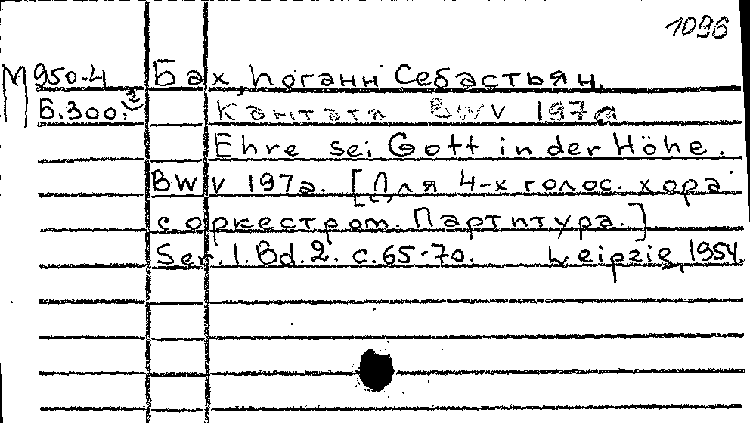 1096
М950-4 Бах, Иоганн Себастьян.
Б.300. Кантата BWV 197a
Ehre sei Gott in der Höhe.
BWV 197a. [Для 4-х голос. хора
с оркестром. Партитура.]
Ser. I. Bd. 2. с. 65-70. Leipzig, 1954.